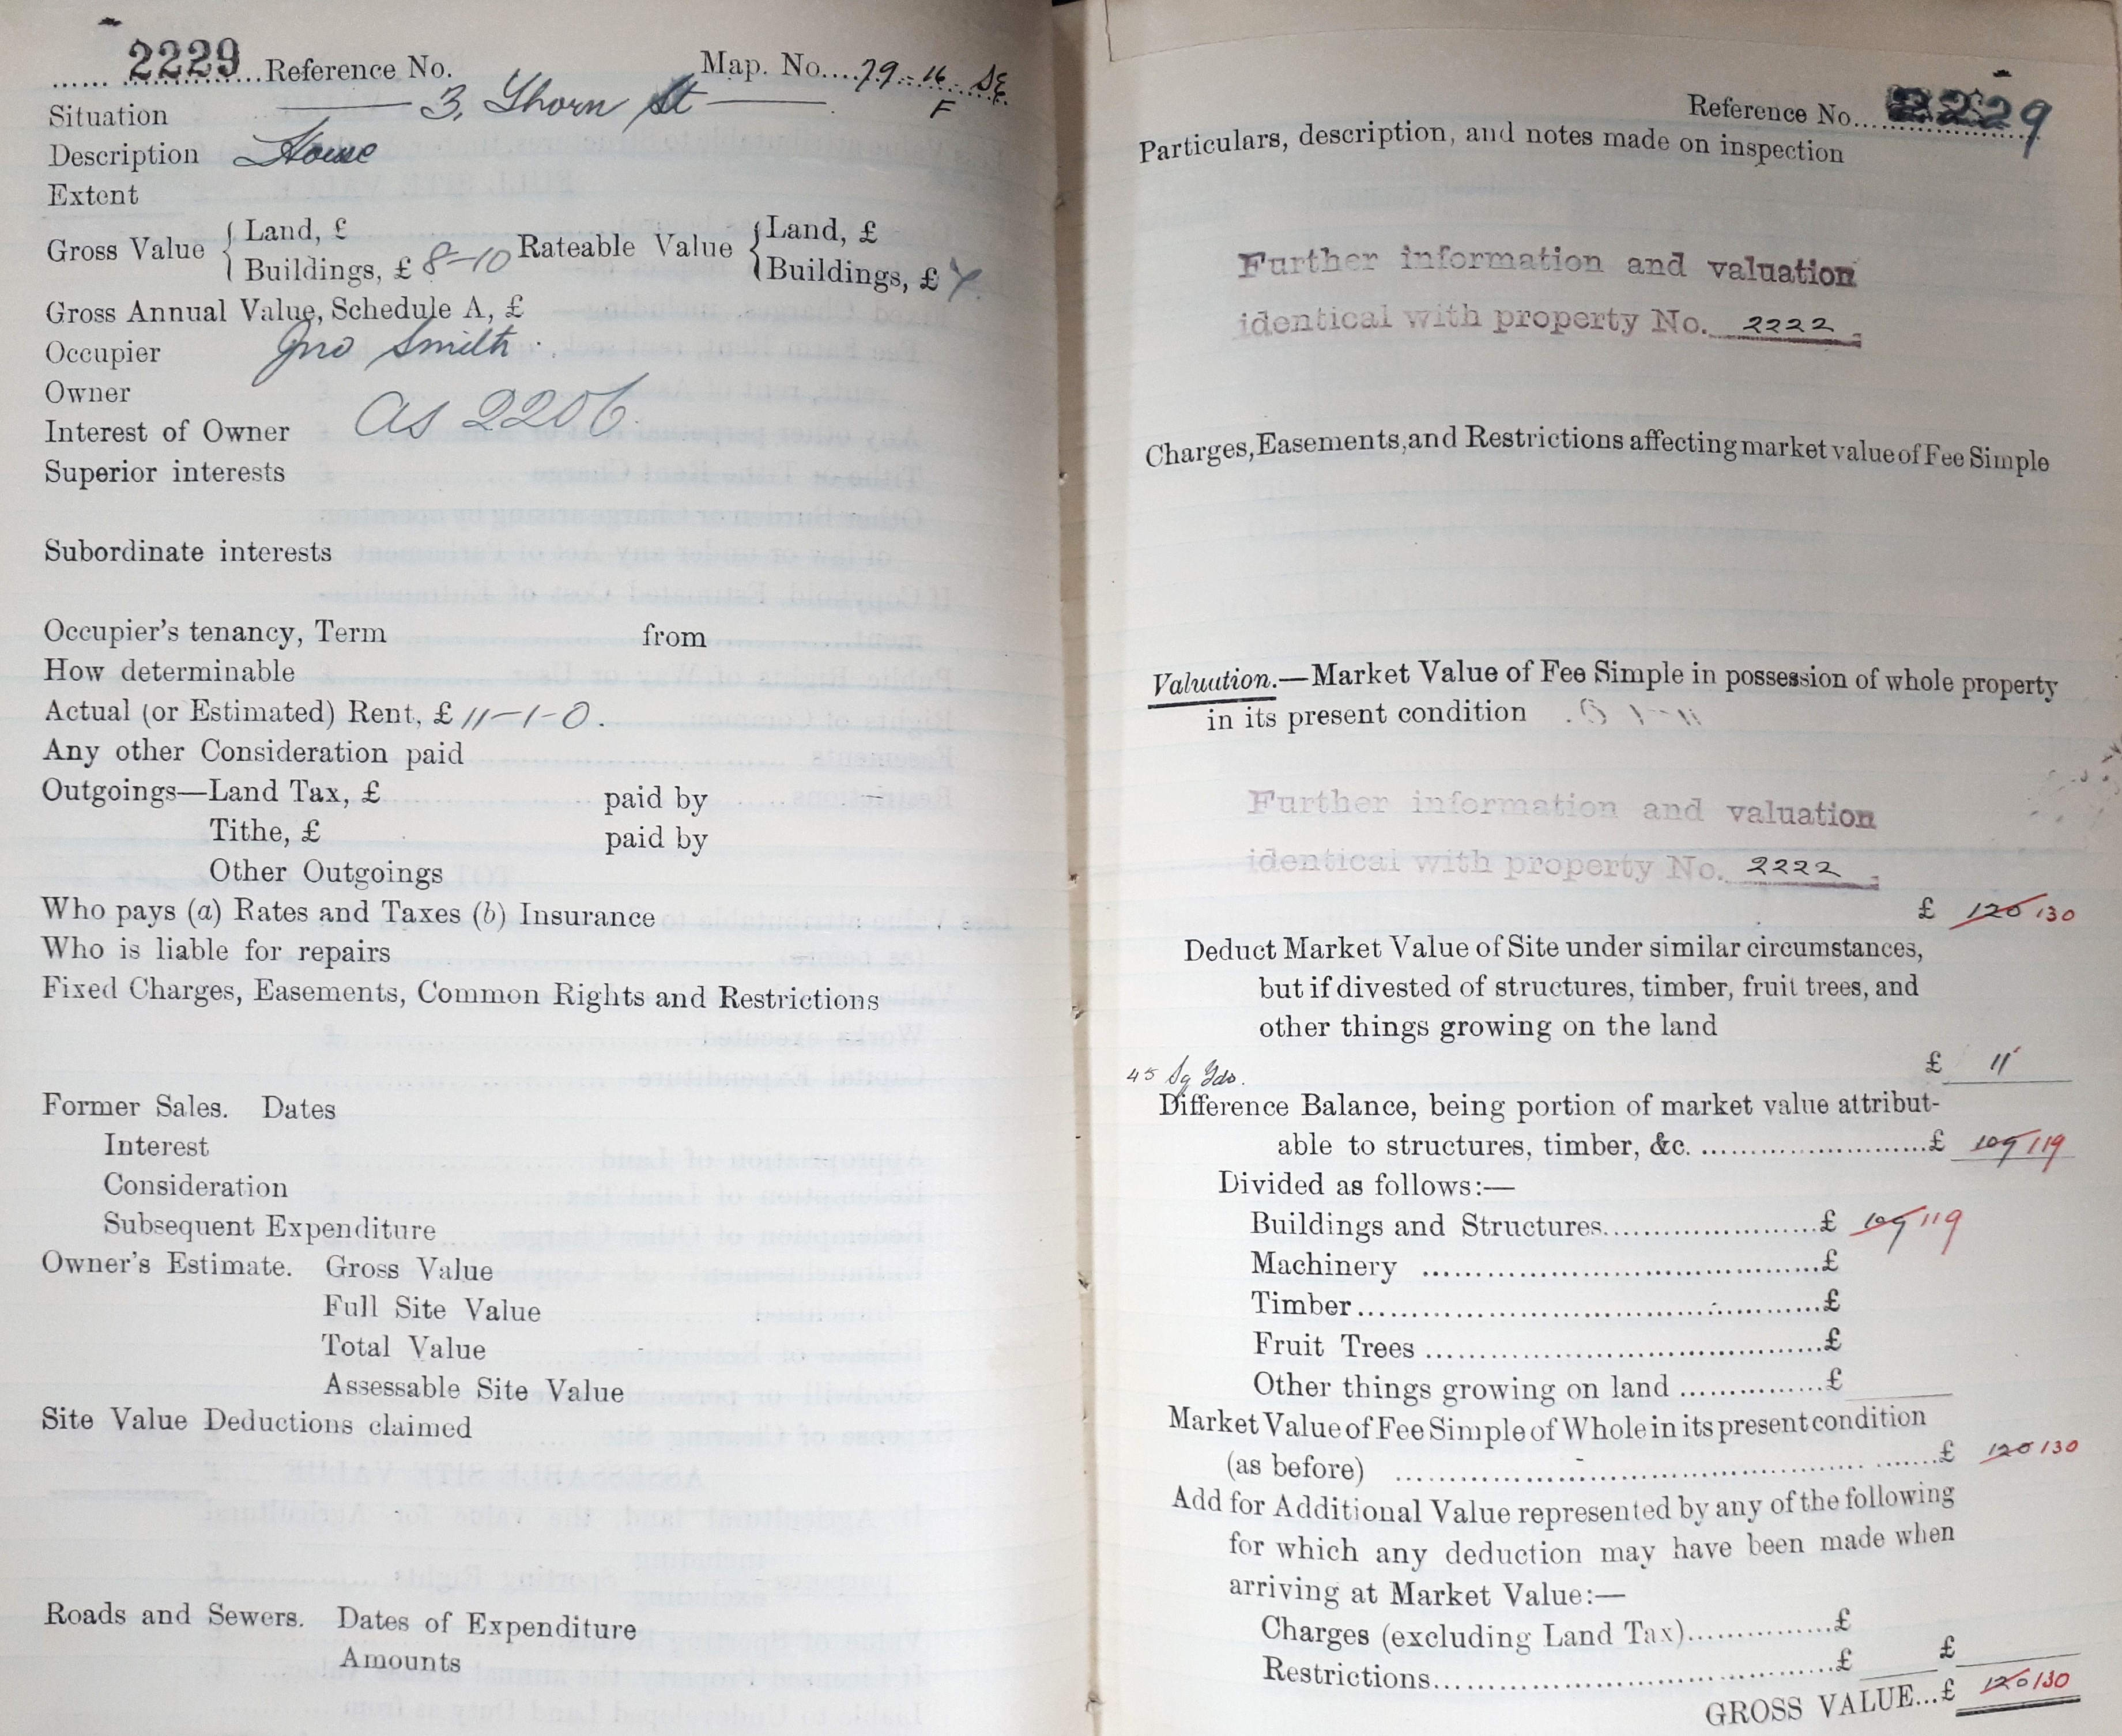 2229 Reference No. Map. No. 79-16 SE
F
Situation 3, Thorn St
Description House
Extent
Gross Value { Land, £ Rateable Value { Land, £
Buildings, £ 8-10 Buildings, £
Gross Annual Value, Schedule A, £
Occupier Jno Smith
Owner
as 2206
Interest of Owner
Superior interests
Subordinate interests
Occupier's tenancy, Term from
How determinable
Actual (or Estimated) Rent, £ 11-1-0.
Any other Consideration paid
Outgoings—Land Tax, £ paid by
Tithe, £ paid by
Other Outgoings
Who pays (a) Rates and Taxes (b) Insurance
Who is liable for repairs
Fixed Charges, Easements, Common Rights and Restrictions
Former Sales. Dates
Interest
Consideration
Subsequent Expenditure
Owner's Estimate. Gross Value
Full Site Value
Total Value
Assessable Site Value
Site Value Deductions claimed
Roads and Sewers. Dates of Expenditure
Amounts
Reference No. 2229
Particulars, description, and notes made on inspection
Further information and valuation
identical with property No. 2222
Charges, Easements, and Restrictions affecting market value of Fee Simple
Valuation.—Market Value of Fee Simple in possession of whole property
in its present condition
Further information and valuation
identical with property No. 2222
£ 120 130
Deduct Market Value of Site under similar circumstances,
but if divested of structures, timber, fruit trees, and
other things growing on the land
£ 11
45 Sq Yds.
Difference Balance, being portion of market value attribut-
able to structures, timber, &c. £ 109 119
Divided as follows:—
Buildings and Structures £ 109 119
Machinery £
Timber £
Fruit Trees £
Other things growing on land £
Market Value of Fee Simple of Whole in its present condition
(as before) £ 120 130
Add for Additional Value represented by any of the following
for which any deduction may have been made when
arriving at Market Value:—
Charges (excluding Land Tax) £
Restrictions £ £
GROSS VALUE... £ 120 130